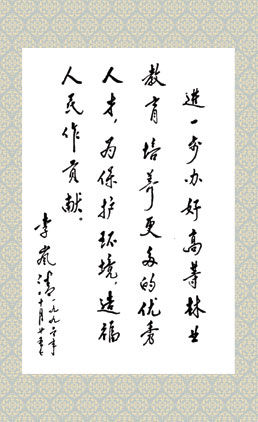 进一步办好高等林业
教育培养更多的优秀
人才，为保护环境，造福
人民作贡献。
李岚清
一九九六年
十月廿五日